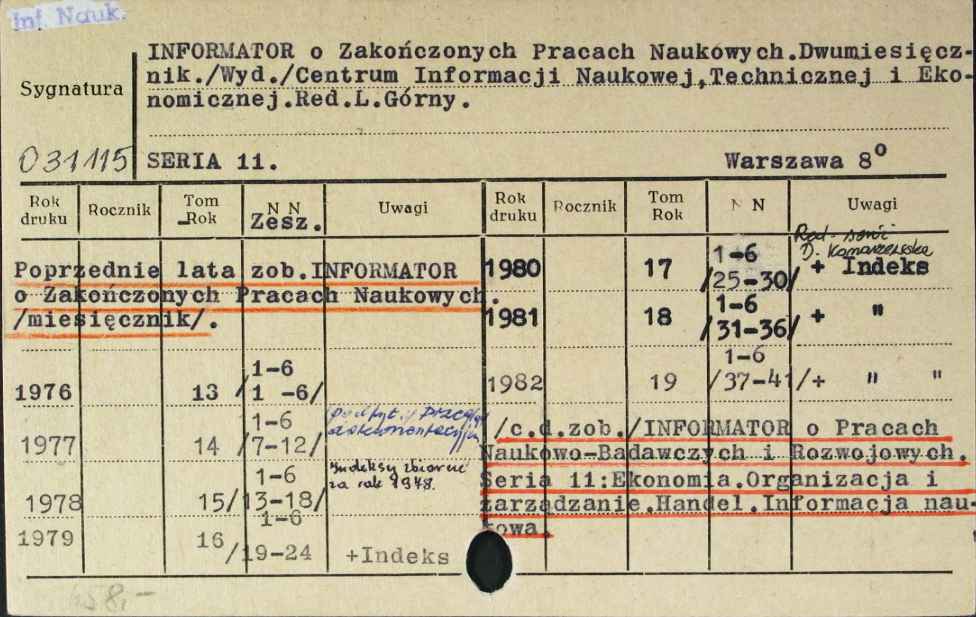 Inf. Nauk.
INFORMATOR o Zakończonych Pracach Naukowych.Dwumiesięcz-
nik./Wyd./Centrum Informacji Naukowej,Technicznej i Eko-
nomicznej.Red.L.Górny.
Sygnatura
031115
SERIA 11. Warszawa 8°
Rok druku Rocznik Tom Rok N N Zesz. Uwagi
Poprzednie lata zob.INFORMATOR
o Zakończonych Pracach Naukowych.
/miesięcznik/.
1976 13 1-6 /1 -6/
1977 14 1-6 /7-12/ podtyt.:
1978 15 1-6 /13-18/ Indeksy zbiorcze za rok 1978.
1979 16 1-6 /19-24 +Indeks
Rok druku Rocznik Tom Rok N N Uwagi
Red. serii
D.
1980 17 1-6 /25-30/ + Indeks
1981 18 1-6 /31-36/ + "
1982 19 1-6 /37-41/+ " "
/c.d.zob./INFORMATOR o Pracach
Naukowo-Badawczych i Rozwojowych.
Seria 11:Ekonomia.Organizacja i
zarządzanie.Handel.Informacja nau-
kowa.
458,-